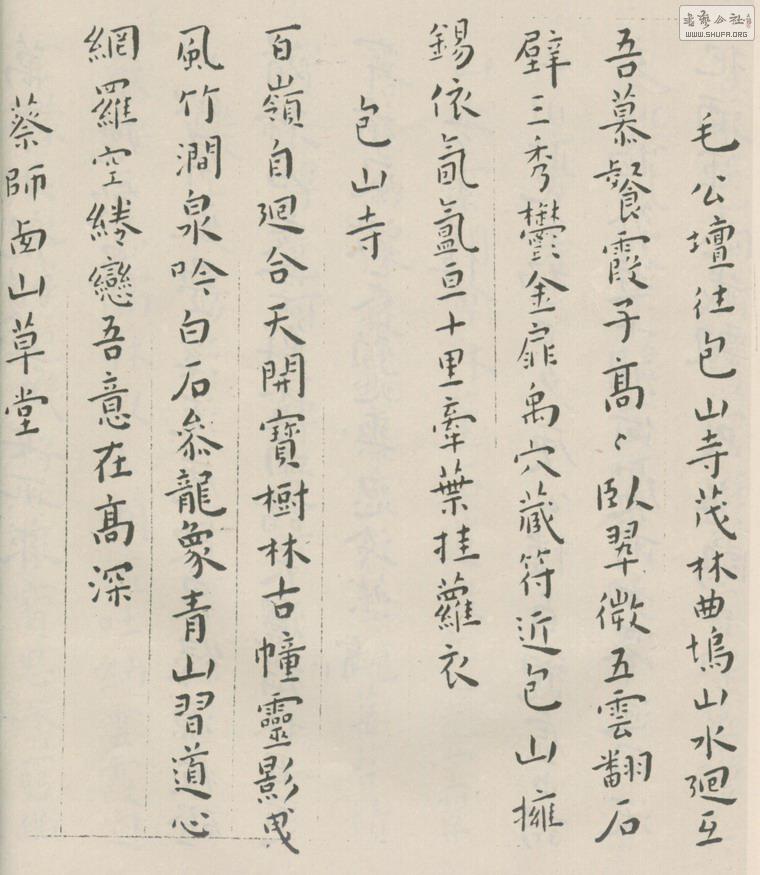 毛公壇往包山寺茂林曲塢山水廻互
吾慕餐霞子高〻臥翠微五雲翻石
壁三秀鬱金扉禹穴藏符近包山擁
錫依氤氳亘十里牽葉挂蘿衣
包山寺
百嶺自廻合天開寶樹林古幢靈影曳
風竹澗泉吟白石叅龍象青山習道心
網羅空綣戀吾意在高深
蔡師西山草堂
書藝公社
WWW.SHUFA.ORG